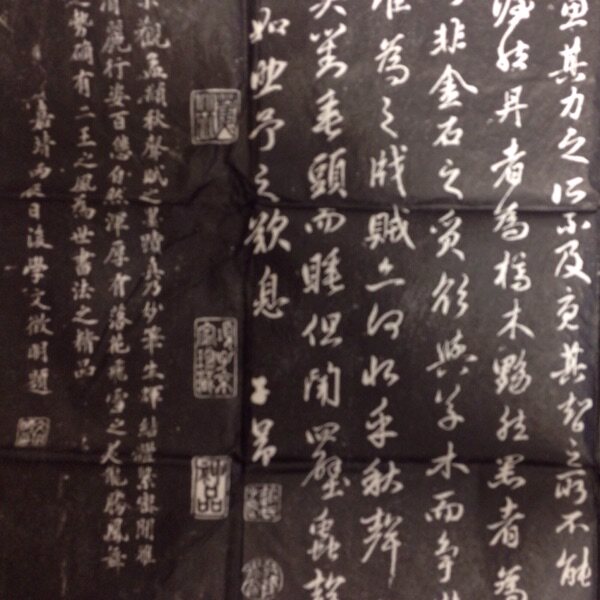 思其力之所不及憂其智之所不能
渥然丹者為槁木黟然黑者為
非金石之質欲與草木而爭
誰為之戕賊亦何恨乎秋聲
莫對垂頭而睡但聞四壁蟲聲
如助予之歎息 子昂
觀孟頫秋聲賦之墨蹟真乃妙筆生輝結體緊密閒雅
清麗行姿百態自然渾厚有落花飛雪之美龍騰鳳舞
之勢确有二王之風為世書法之精品
嘉靖丙辰日後學文徵明題